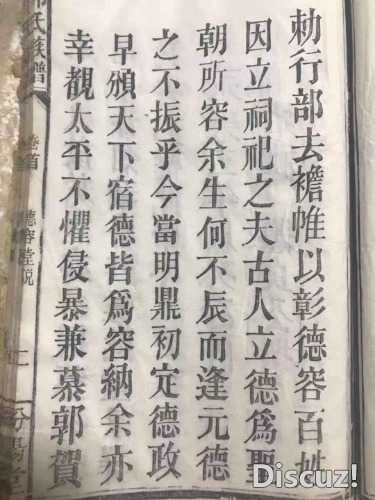 勅行部去襜帷以彰德容百姓
因立祠祀之夫古人立德為聖
朝所容余生何不辰而逢元德
之不振乎今當明鼎初定德政
早頒天下宿德皆爲容納余亦
幸覩太平不懼侵暴兼慕郭賀
氏族譜
卷首
德容堂說
Discuz!